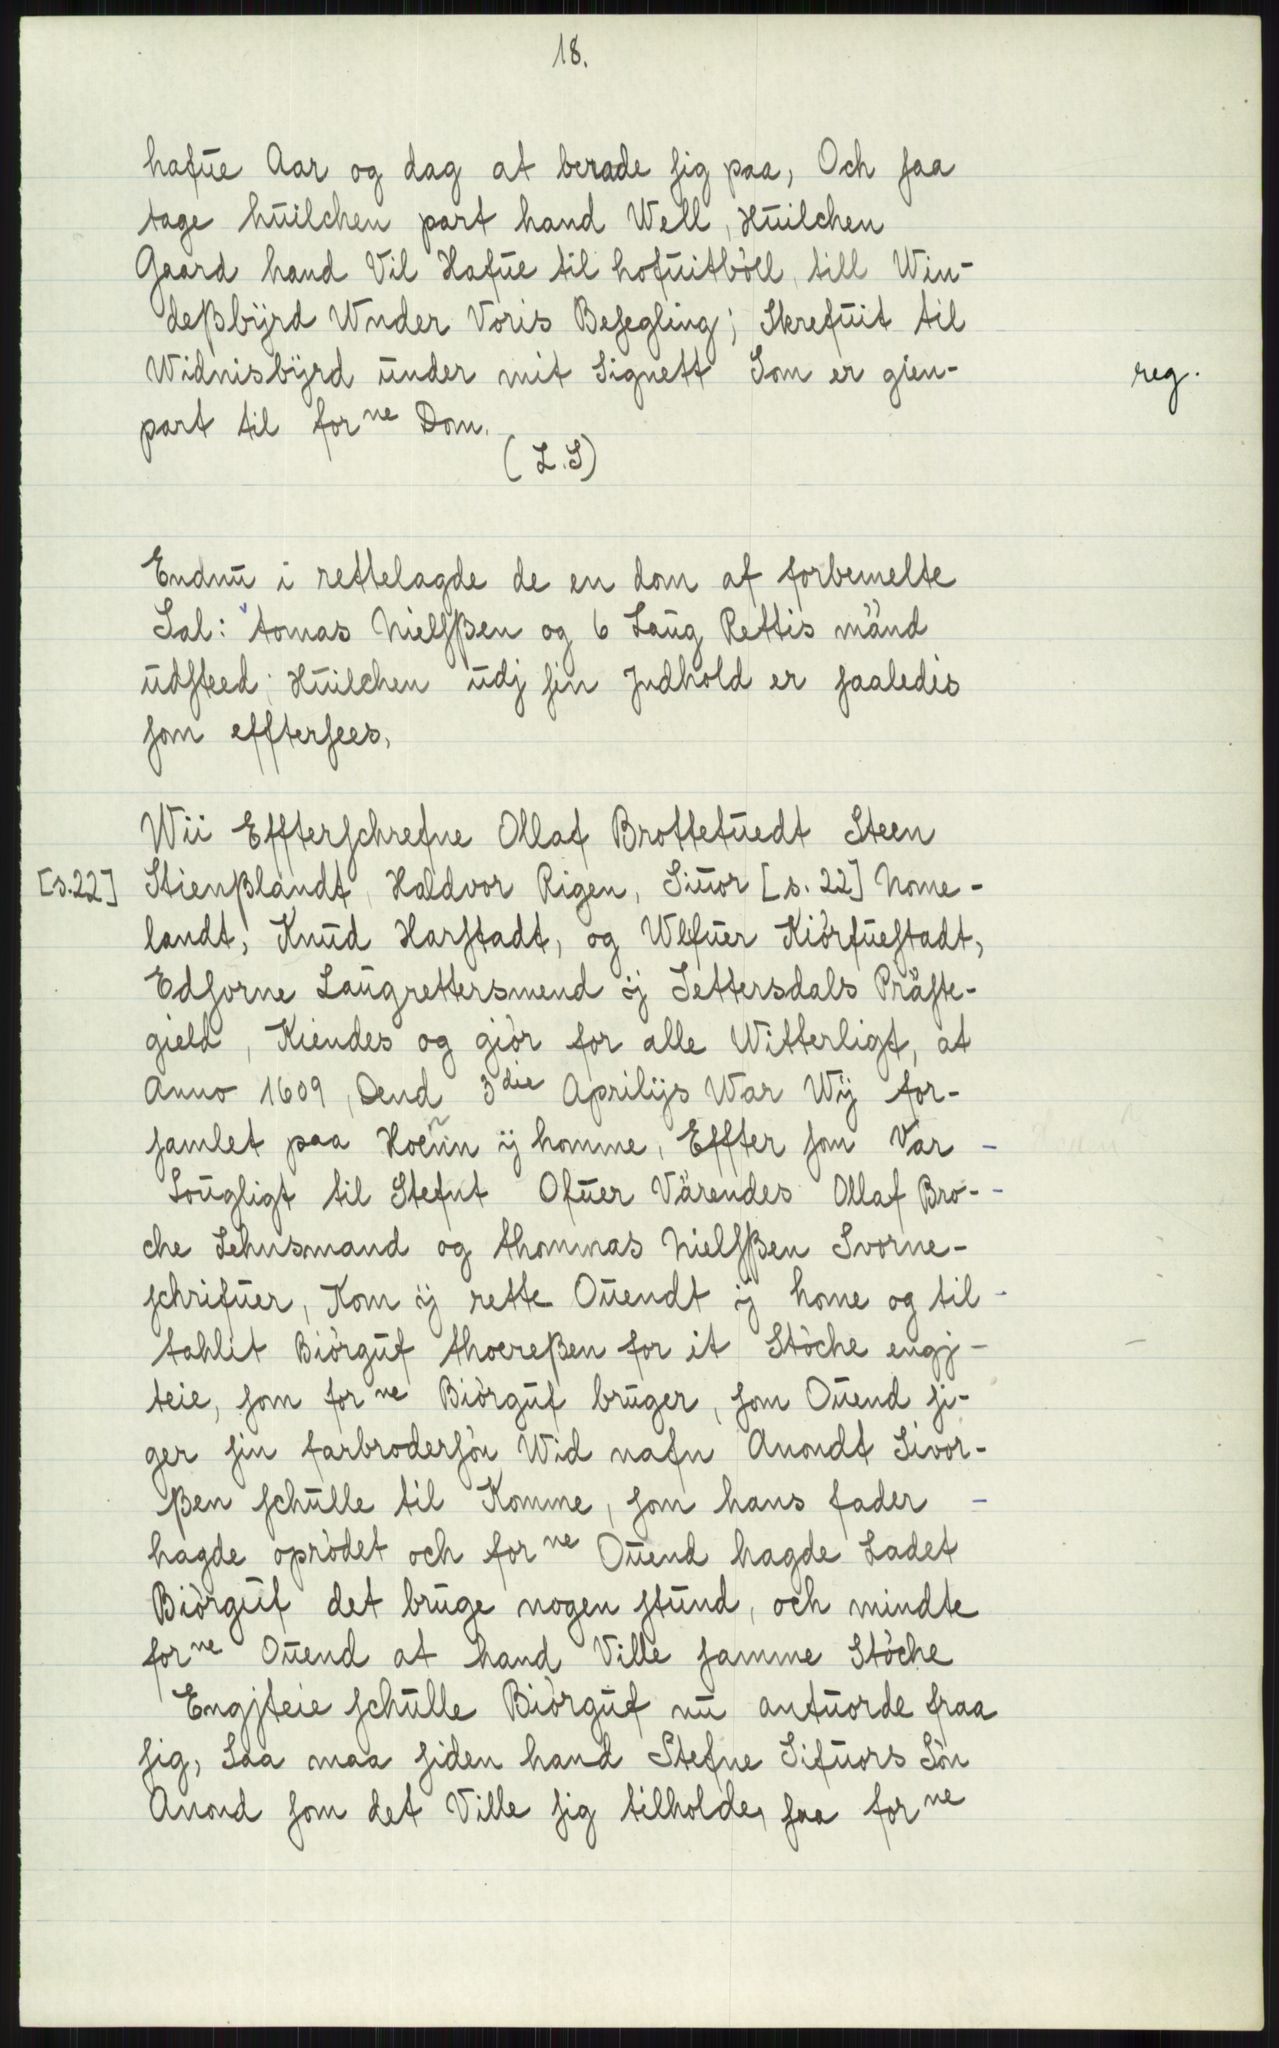 18.
hafue Aar og dag at berade sig paa, Och saa
tage huilchen part hand Well, Huilchen
Gaard hand Vil Hafue til hofuitböll, till Win-
deßbÿrd Wnder Voris Besegling; Skrefuit til
Widnisbÿrd under mit Signett Som er gien-
reg.
part til forne Dom.
(L.S)
Endnu i rettelagde de en dom af forbemelte
Sal: tomas Nielsßen og 6 Laug Rettis mänd
udsteed; Huilchen udj sin Jndhold er saaledis
som efftersees,
Wii Effterschrefne Ollaf Brottetuedt Steen
[s.22] Stienßlandt, Haldvor Rigen, Siuor [s. 22] Nome-
landt, Knud Harstadt, og Wlfuer Kiörfuestadt,
Edsorne Laugrettersmend ÿ Settersdals Präste-
gield, Kiendes og giör for alle Witterligt, at
Anno 1609, Dend 3die Aprilÿs War Wÿ for-
samlet paa Hoeun ÿ homme, Effter som Var
Lougligt til Stefnt Ofuer Värendes Ollaf Bro-
che Lehnsmand og thommas Nielsßen Svorne-
schrifuer, Kom ÿ rette Ouendt ÿ home og til
tahlit Biörguf thoereßen for it Stöche engj-
teie, som forne Biörguf bruger, som Ouend si-
ger sin farbrodersön Wid nafn Anondt Sivor-
ßen schulle til Komme, som hans fader
hagde oprödet och forne Ouend hagde Ladet
Biörguf det bruge nogen stund, och mindte
forne Ouend at hand Ville samme Stöche
Engjteie schulle Biörguf nu antuorde fraa
sig, Saa maa siden hand Stefne Sifuors Sön
Anond som det Ville sig tilholde, saa forne